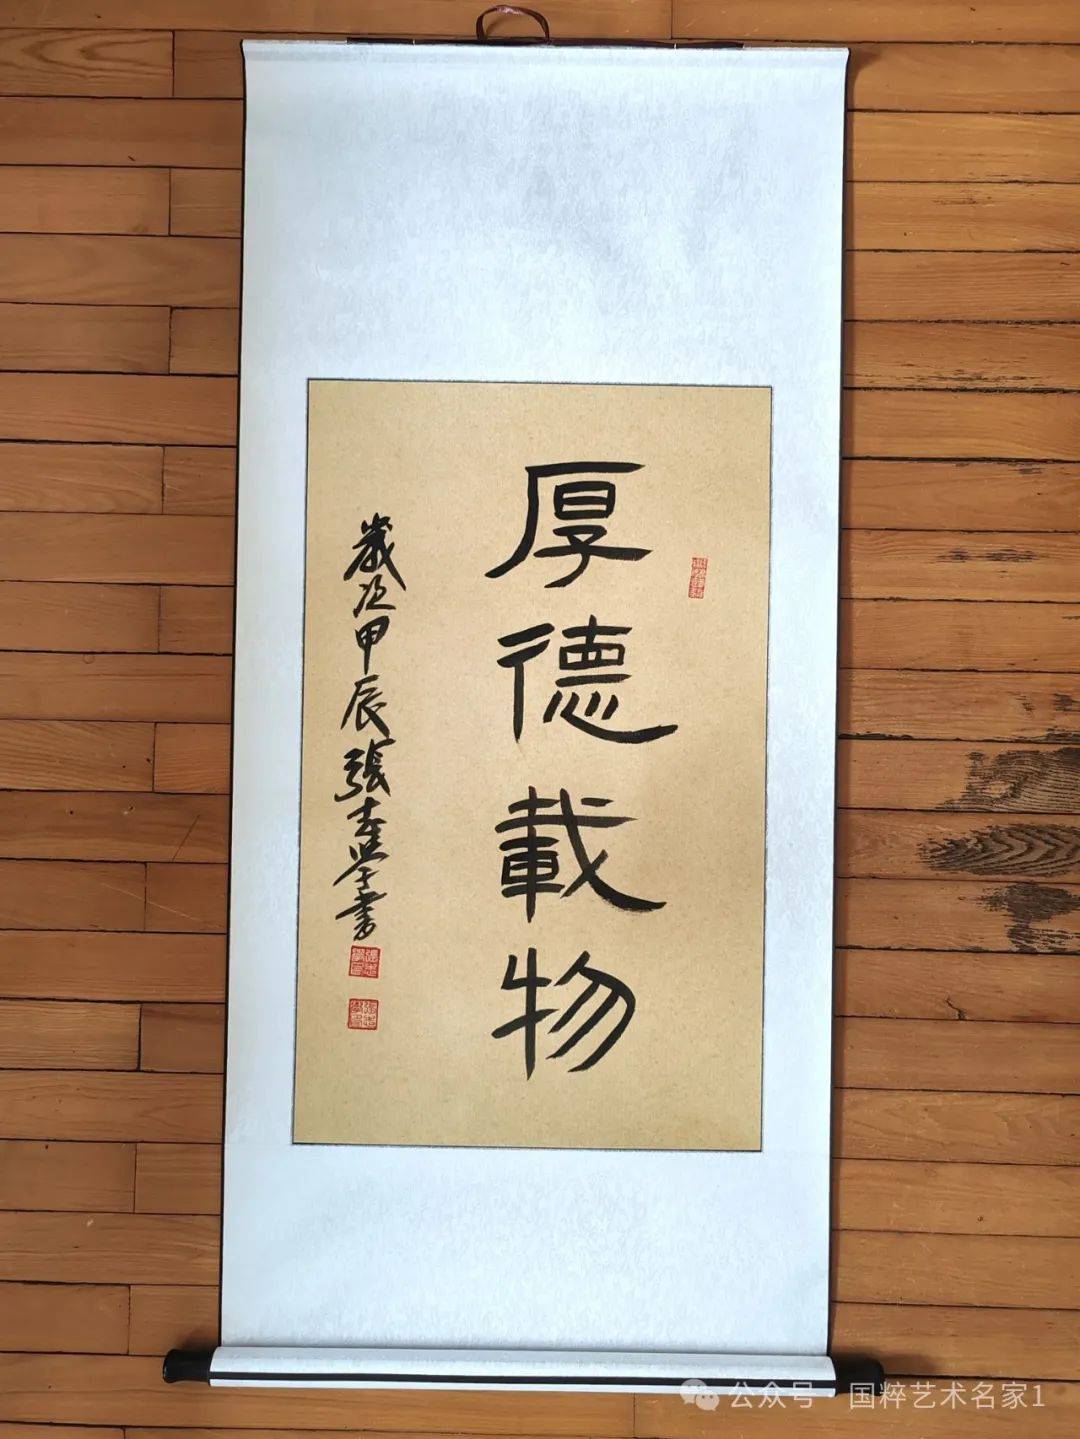 厚德載物
歲次甲辰張志學書
公众号 · 国粹艺术名家1